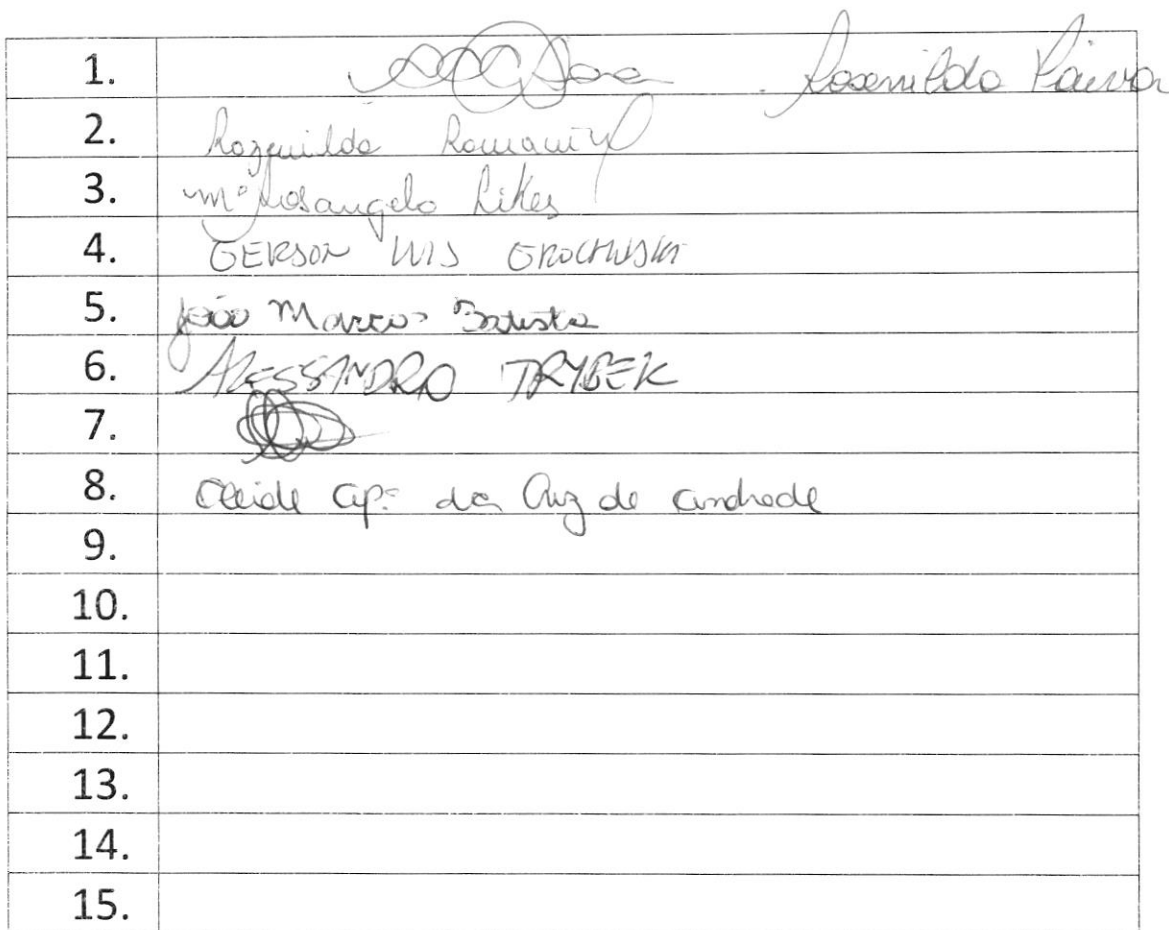 1. Rosenilda Paiva
2. Rozenilda
3. Mª Rosangela Likes
4. GERSON LUIS GROCHOWSKI
5. João Marcos Batista
6. ALESSANDRO TRYBEK
7.
8. Cleide Apª da Cruz de Andrade
9.
10.
11.
12.
13.
14.
15.